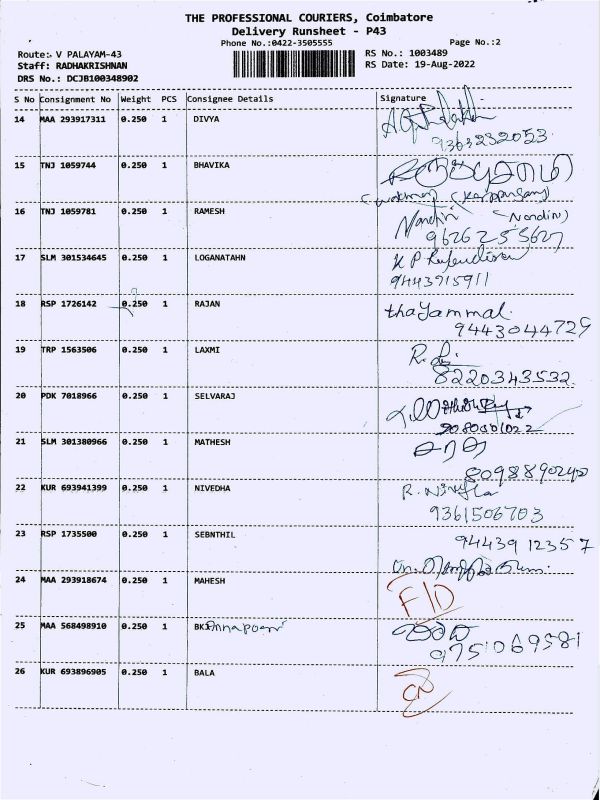 THE PROFESSIONAL COURIERS, Coimbatore
Delivery Runsheet - P43
Phone No.:0422-3505555
Page No.:2
Route:- V PALAYAM-43
RS No.: 1003489
Staff: RADHAKRISHNAN
RS Date: 19-Aug-2022
DRS No.: DCJB100348902
S No Consignment No Weight PCS Consignee Details Signature
14 MAA 293917311 0.250 1 DIVYA
9363232053
15 TNJ 1059744 0.250 1 BHAVIKA
16 TNJ 1059781 0.250 1 RAMESH Nandini (Nandini)
9626255627
17 SLM 301534645 0.250 1 LOGANATAHN
9443915911
18 RSP 1726142 0.250 1 RAJAN thayammal.
9443044729
19 TRP 1563506 0.250 1 LAXMI
8220343532
20 PDK 7018966 0.250 1 SELVARAJ
21 SLM 301380966 0.250 1 MATHESH
22 KUR 693941399 0.250 1 NIVEDHA
9361506703
23 RSP 1735500 0.250 1 SEBNTHIL 9443912357
24 MAA 293918674 0.250 1 MAHESH
25 MAA 568498910 0.250 1
9751069581
26 KUR 693896905 0.250 1 BALA